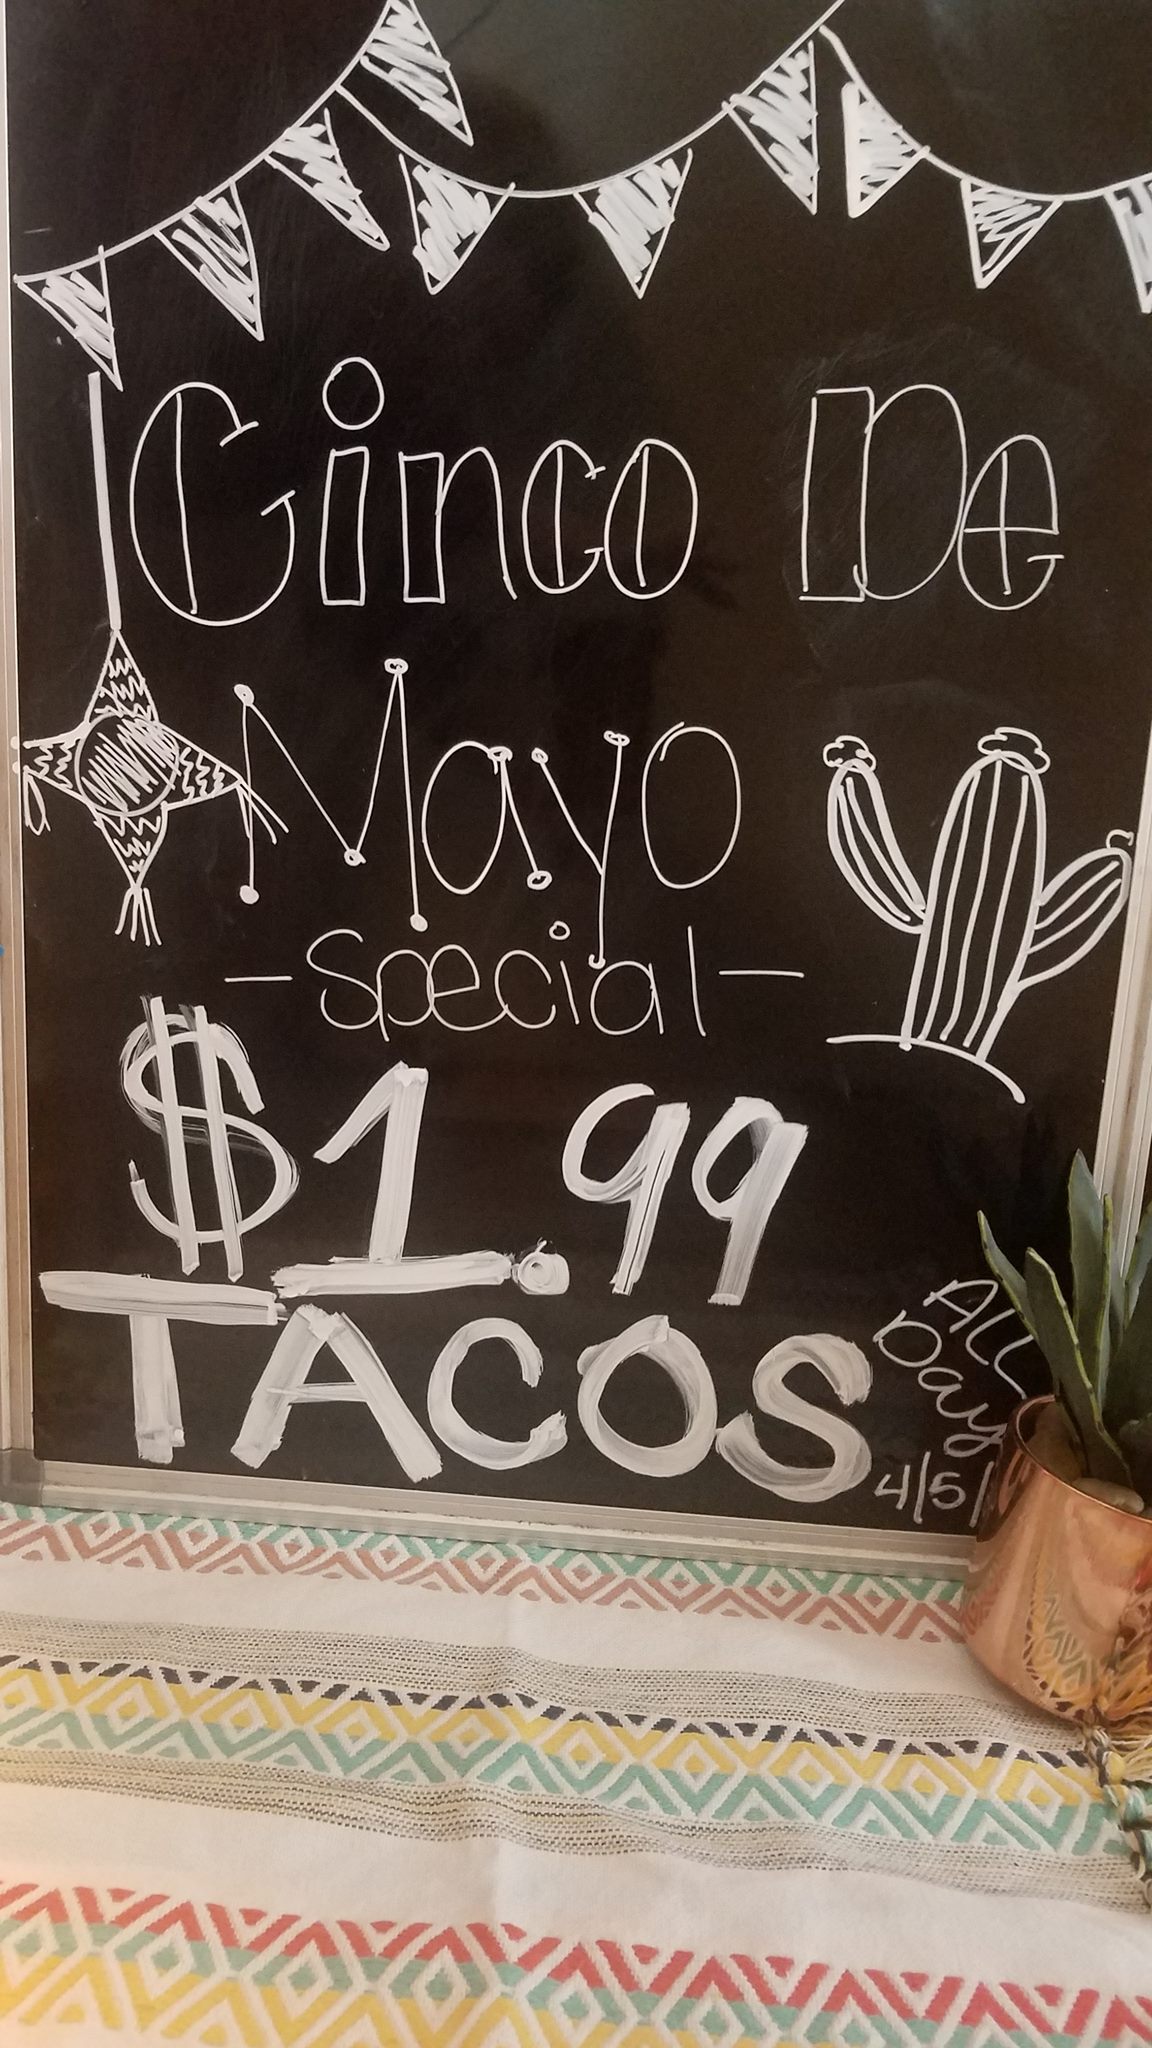 Cinco De
Mayo
- Special -
$1.99
TACOS
All
Day
4/5/